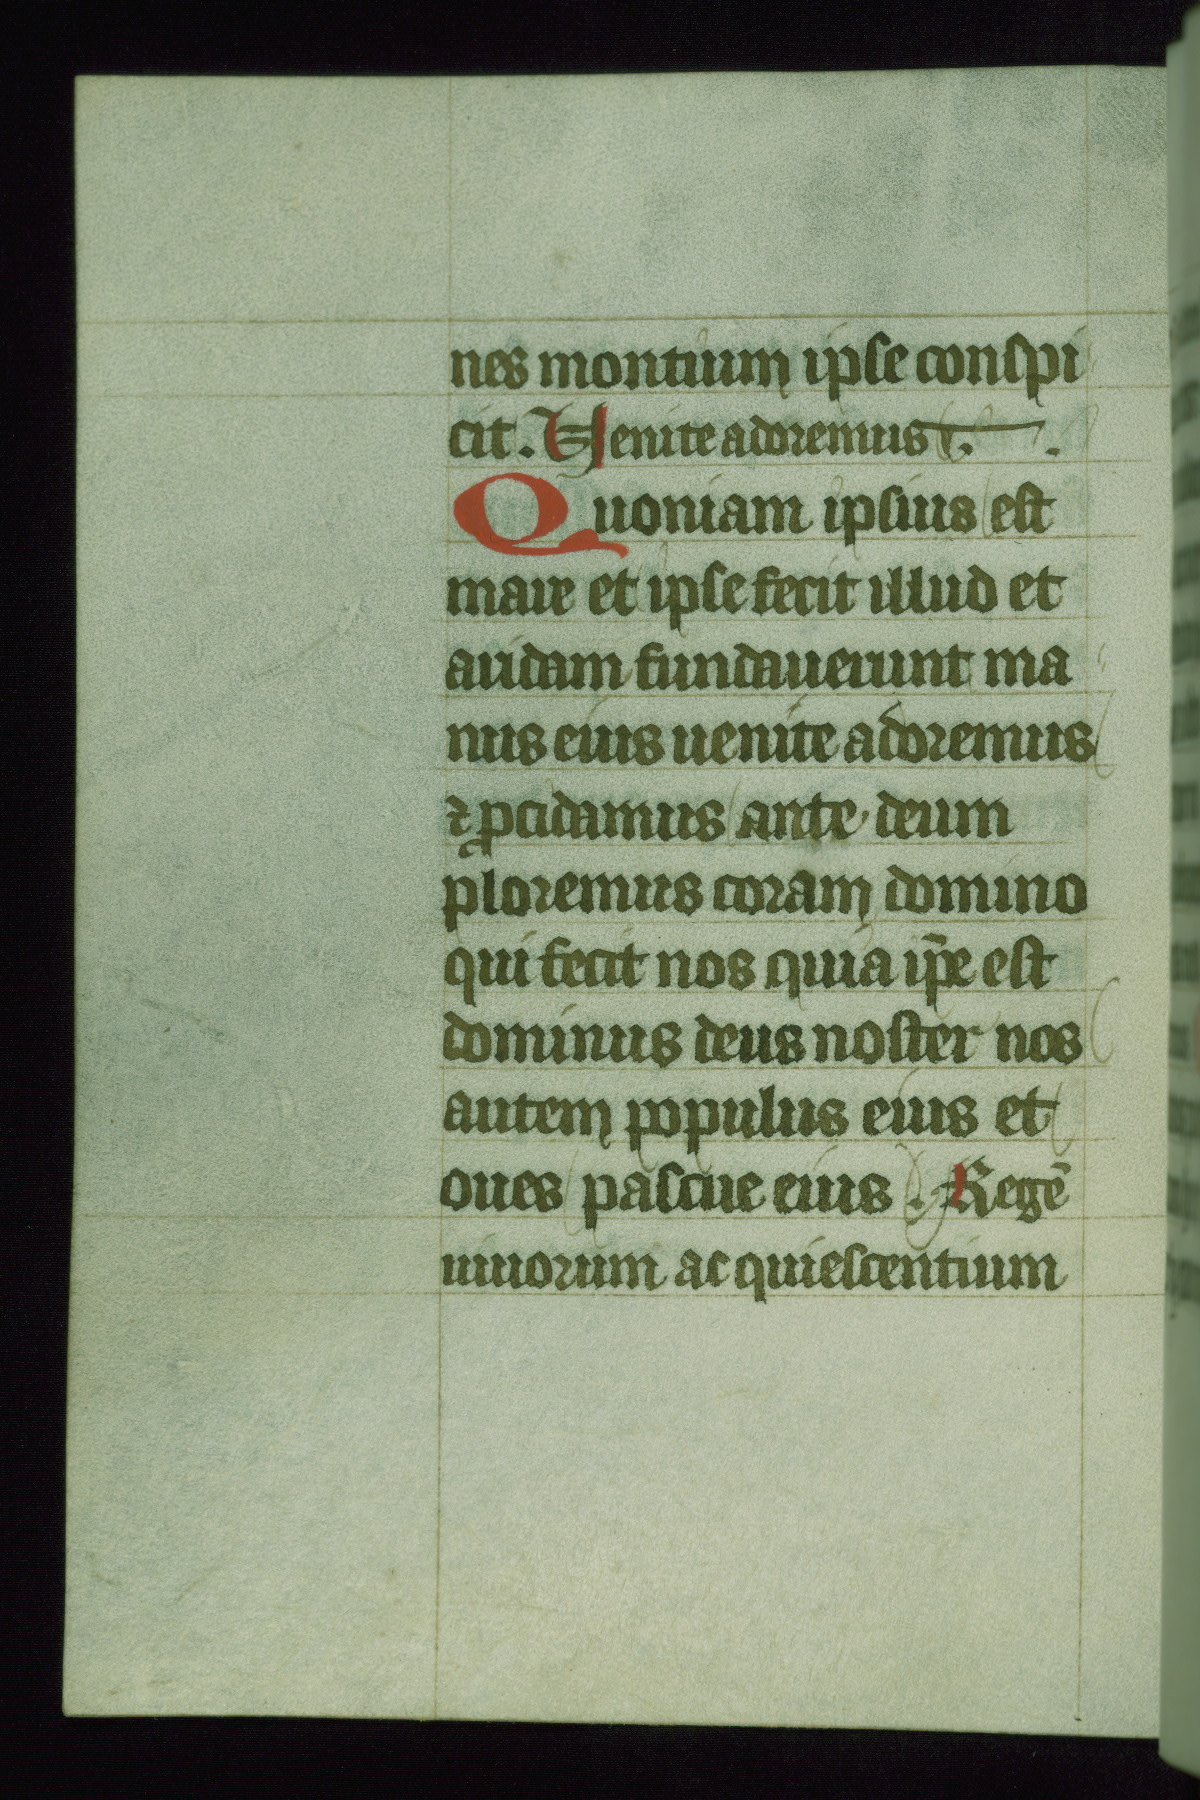 nes montium ipse conspi
cit. Venite adoremus.
Quoniam ipsius est
mare et ipse fecit illud et
aridam fundauerunt ma
nus eius uenite adoremus
⁊ ꝓcidamus ante deum
ploremus coram domino
qui fecit nos quia ip̄e est
dominus deus noster nos
autem populus eius et
oues pascue eius. Regē
uiuorum ac quiescentium